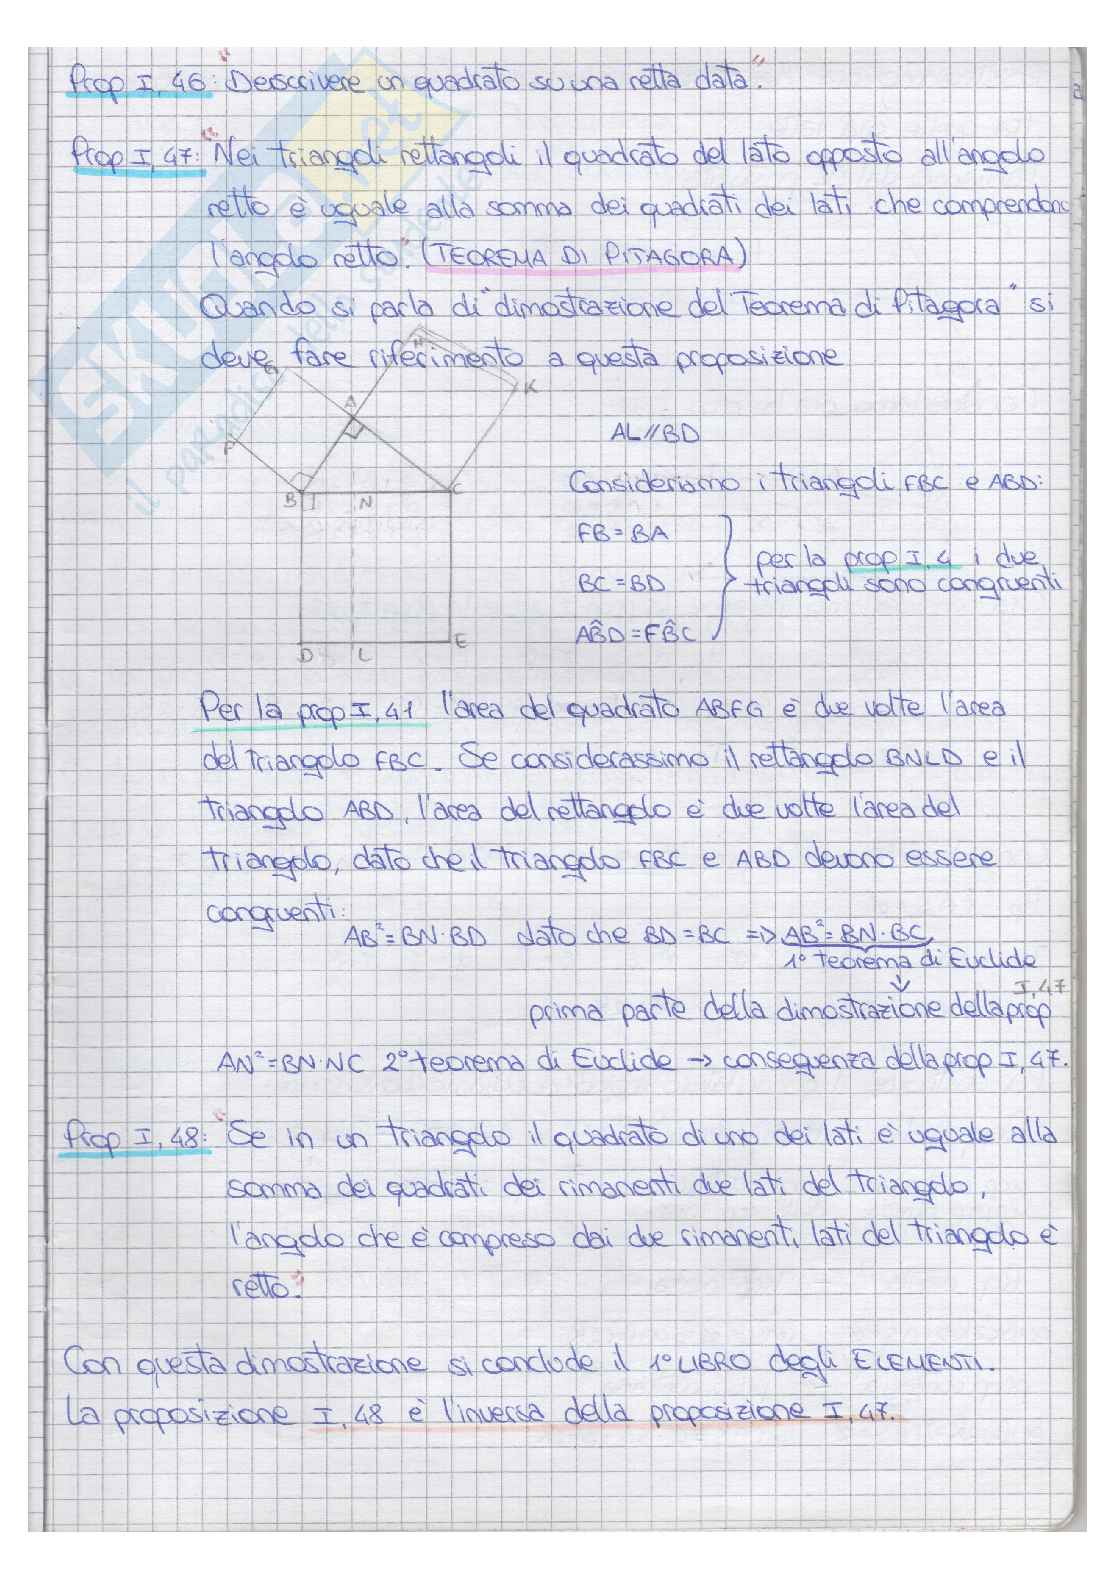 Prop I, 46: "Desscrivere un quadrato su una retta data."
Prop I, 47: "Nei triangoli rettangoli il quadrato del lato opposto all'angolo
retto è uguale alla somma dei quadrati dei lati che comprendono
l'angolo retto." (TEOREMA DI PITAGORA)
Quando si parla di "dimostrazione del Teorema di Pitagora" si
deve fare riferimento a questa proposizione
H
G
K
A
F
B N C
D L E
AL//BD
Consideriamo i triangoli FBC e ABD:
FB=BA
BC=BD
AB̂D=FB̂C
per la prop I, 4 i due
triangoli sono congruenti
Per la prop I, 41 l'area del quadrato ABFG è due volte l'area
del triangolo FBC. Se considerassimo il rettangolo BNLD e il
triangolo ABD, l'area del rettangolo è due volte l'area del
triangolo, dato che il triangolo FBC e ABD devono essere
congruenti:
AB²=BN·BD dato che BD=BC => AB²=BN·BC
1° teorema di Euclide
↓
prima parte della dimostrazione della prop I, 47
AN²=BN·NC 2° teorema di Euclide → conseguenza della prop I, 47.
Prop I, 48: "Se in un triangolo il quadrato di uno dei lati è uguale alla
somma dei quadrati dei rimanenti due lati del triangolo,
l'angolo che è compreso dai due rimanenti lati del triangolo è
retto."
Con questa dimostrazione si conclude il 1° LIBRO degli ELEMENTI.
La proposizione I, 48 è l'inversa della proposizione I, 47.
SKUOLA.net